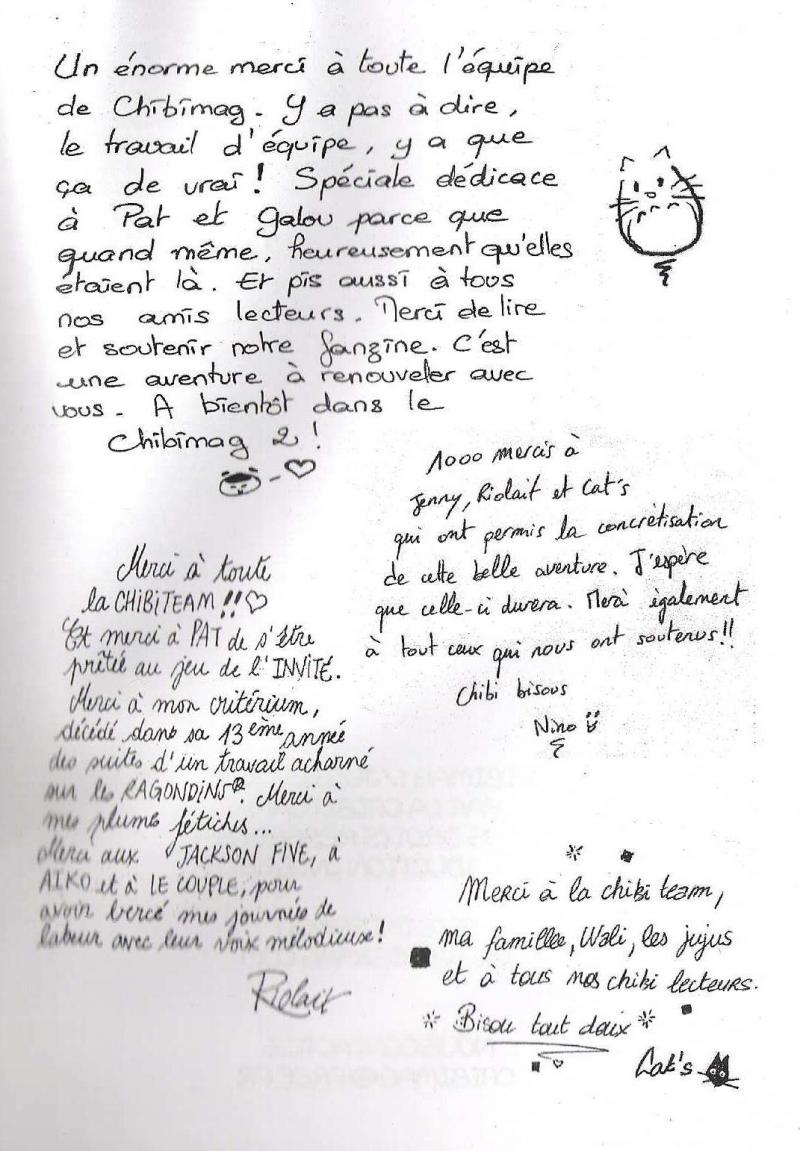 Un énorme merci à toute l'équipe
de Chibimag. Y a pas à dire,
le travail d'équipe, y a que
ça de vrai ! Spéciale dédicace
à Pat et Galou parce que
quand même, heureusement qu'elles
étaient là. Et pis aussi à tous
nos amis lecteurs. Merci de lire
et soutenir notre fanzine. C'est
une aventure à renouveler avec
vous. A bientôt dans le
Chibimag 2 !
1000 mercis à
Jenny, Riolait et Cat's
qui ont permis la concrétisation
de cette belle aventure. J'espère
que celle-ci durera. Merci également
à tout ceux qui nous ont soutenus !!
Chibi bisous
Nino
Merci à toute
la CHIBITEAM !!
Et merci à PAT de s'être
prêtée au jeu de l'INVITÉ.
Merci à mon critérium,
décédé dans sa 13ème année
des suites d'un travail acharné
sur les RAGONDINS®. Merci à
mes plumes fétiches...
Merci aux JACKSON FIVE, à
AIKO et à LE COUPLE, pour
avoir bercé mes journées de
labeur avec leur voix mélodieuse !
Riolait
Merci à la chibi team,
ma famillee, Wali, les jujus
et à tous nos chibi lecteurs.
* Bisou tout doux *
Cat's